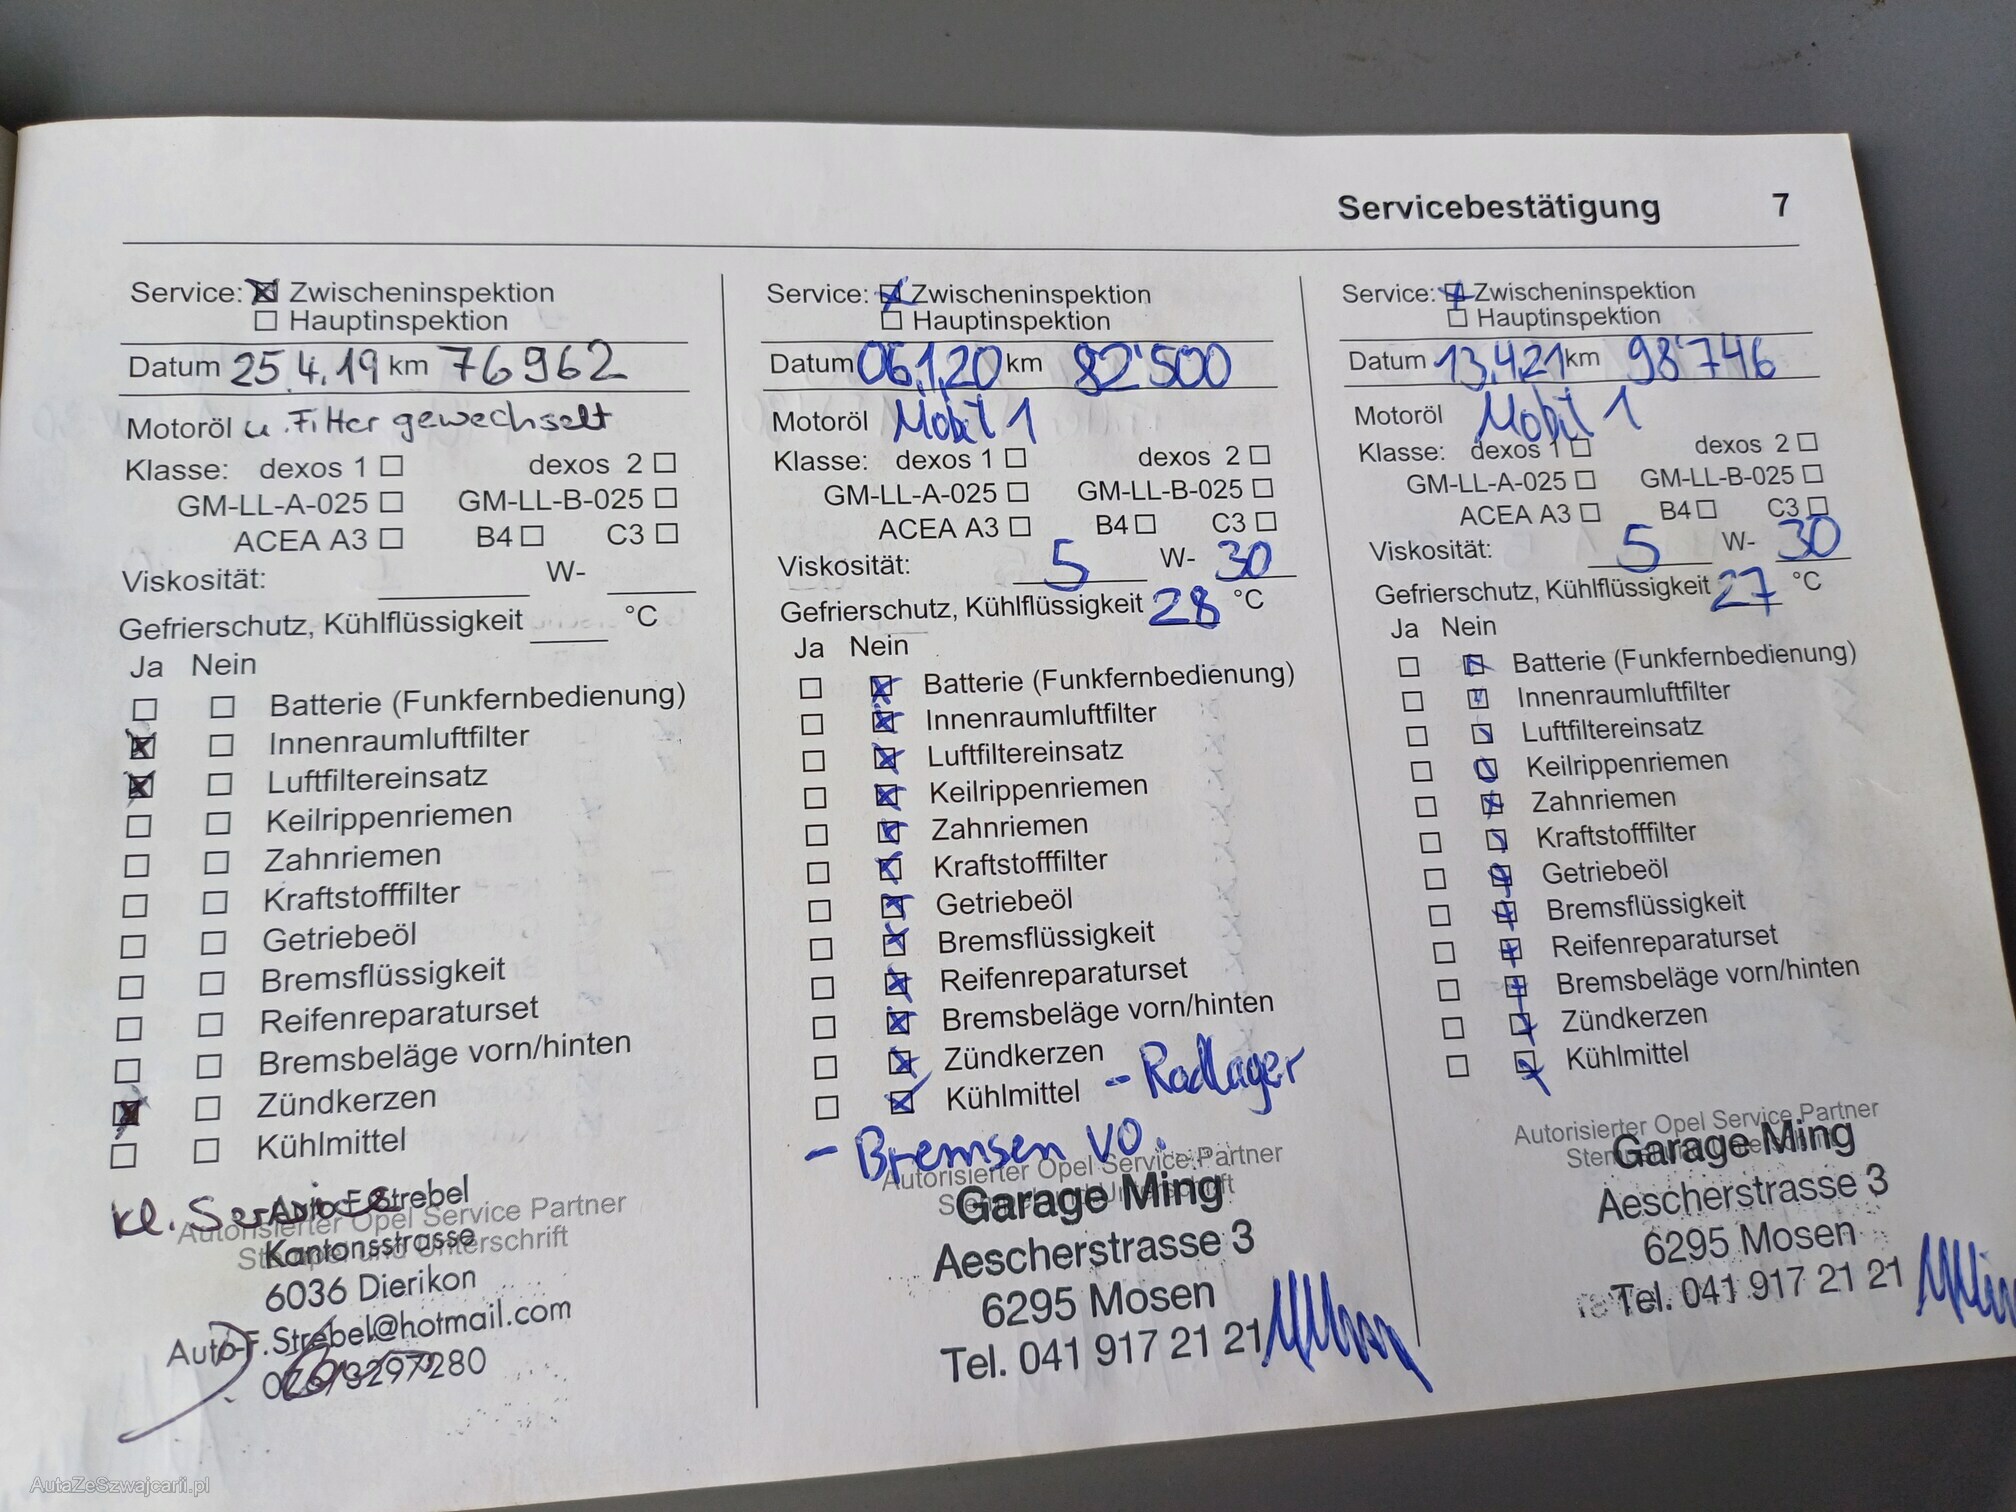 Servicebestätigung 7
Service: Zwischeninspektion
Hauptinspektion
Datum 25.4.19 km 76962
Motoröl u. Filter gewechselt
Klasse: dexos 1 dexos 2
GM-LL-A-025 GM-LL-B-025
ACEA A3 B4 C3
Viskosität: W-
Gefrierschutz, Kühlflüssigkeit °C
Ja Nein
Batterie (Funkfernbedienung)
Innenraumluftfilter
Luftfiltereinsatz
Keilrippenriemen
Zahnriemen
Kraftstofffilter
Getriebeöl
Bremsflüssigkeit
Reifenreparaturset
Bremsbeläge vorn/hinten
Zündkerzen
Kühlmittel
kl. Service
Auto-F.Strebel
Autorisierter Opel Service Partner
Kantonsstrasse
Stempel und Unterschrift
6036 Dierikon
Auto-F.Strebel@hotmail.com
Service: Zwischeninspektion
Hauptinspektion
Datum 06.1.20 km 82'500
Motoröl Mobil 1
Klasse: dexos 1 dexos 2
GM-LL-A-025 GM-LL-B-025
ACEA A3 B4 C3
Viskosität: 5 W- 30
Gefrierschutz, Kühlflüssigkeit 28 °C
Ja Nein
Batterie (Funkfernbedienung)
Innenraumluftfilter
Luftfiltereinsatz
Keilrippenriemen
Zahnriemen
Kraftstofffilter
Getriebeöl
Bremsflüssigkeit
Reifenreparaturset
Bremsbeläge vorn/hinten
Zündkerzen
Kühlmittel - Radlager
- Bremsen vo.
Autorisierter Opel Service Partner
Stempel und Unterschrift
Garage Ming
Aescherstrasse 3
6295 Mosen
Tel. 041 917 21 21
Service: Zwischeninspektion
Hauptinspektion
Datum 13.4.21 km 98'746
Motoröl Mobil 1
Klasse: dexos 1 dexos 2
GM-LL-A-025 GM-LL-B-025
ACEA A3 B4 C3
Viskosität: 5 W- 30
Gefrierschutz, Kühlflüssigkeit 27 °C
Ja Nein
Batterie (Funkfernbedienung)
Innenraumluftfilter
Luftfiltereinsatz
Keilrippenriemen
Zahnriemen
Kraftstofffilter
Getriebeöl
Bremsflüssigkeit
Reifenreparaturset
Bremsbeläge vorn/hinten
Zündkerzen
Kühlmittel
Autorisierter Opel Service Partner
Garage Ming
Aescherstrasse 3
6295 Mosen
Tel. 041 917 21 21
AutaZeSzwajcarii.pl